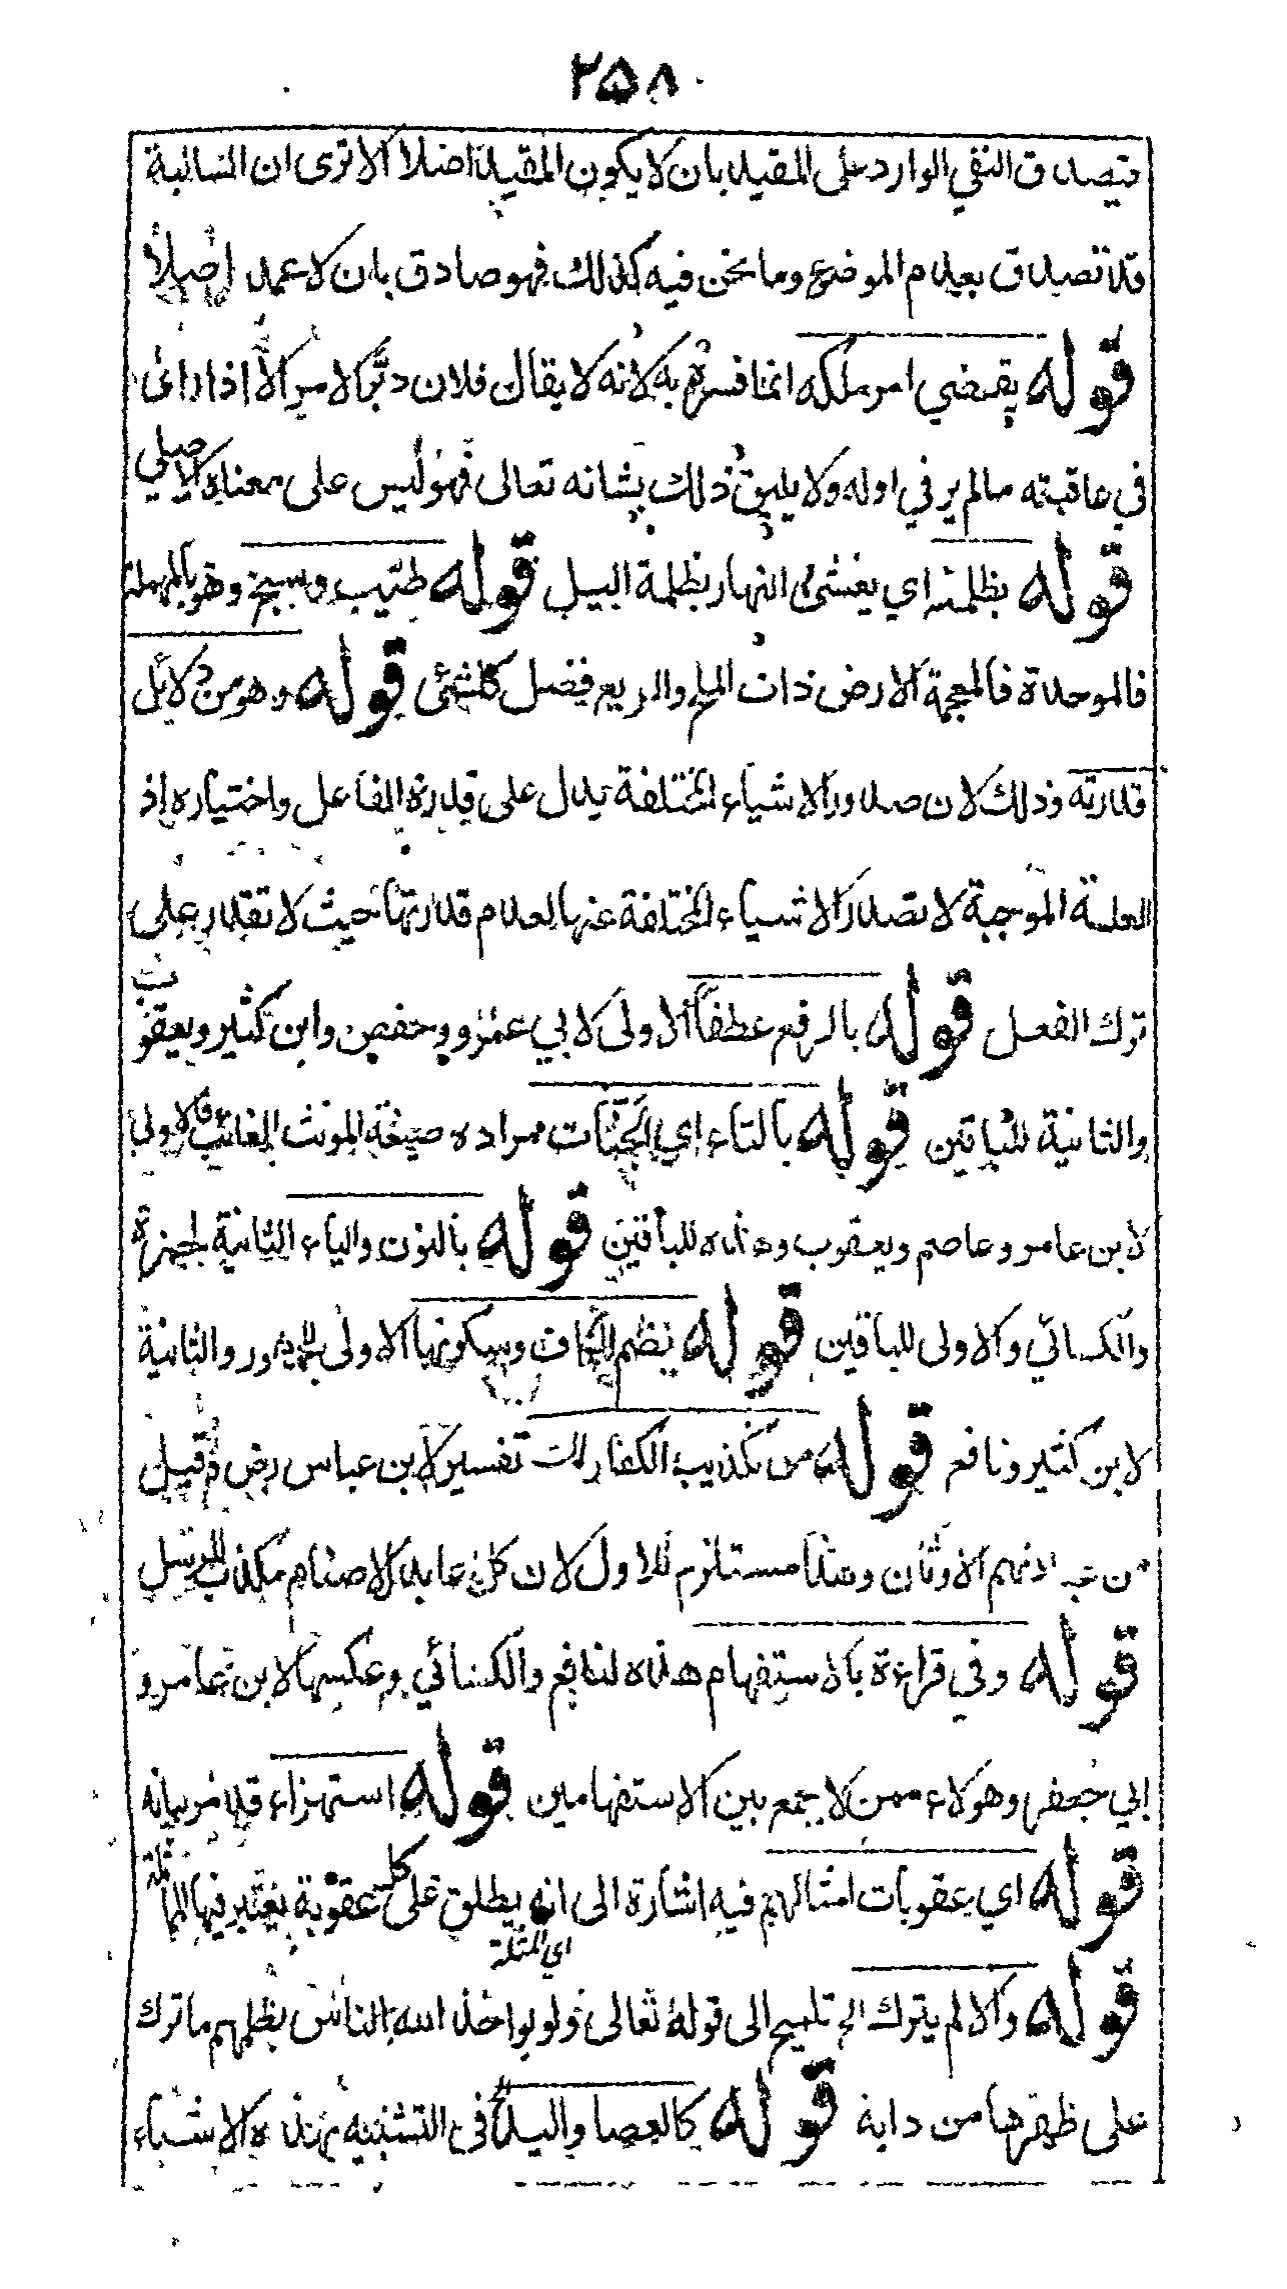 ٢٥٨
فيصدق النفي الوارد على المقيد بان لا يكون المقيد اصلا الا ترى ان السالبة
قد تصدق بعدم الموضوع وما نحن فيه كذلك فهو صادق بان لا عمد اصلا
قوله يقضي امر ملكه انما فسره به لانه لا يقال فلان دبر الامر الا اذا رأى
في عاقبته مالم ير في اوله ولا يليق ذلك بشانه تعالى فهو ليس على معناه الاصلي
قوله بظلمته اي يغشى النهار بظلمة اليل قوله طيب وسبخ وهو بالمهملة
فالموحدة فالمعجمة الارض ذات الملح والريع فضل كلشئ قوله وهو من دلائل
قدرته وذلك لان صدور الاشياء المختلفة يدل على قدرة الفاعل واختياره اذ
العلة الموجبة لا تصدر الاشياء المختلفة عنها لعدم قدرتها حيث لا تقدر على
ترك الفعل قوله بالرفع عطفا الاولى لابي عمرو وحفص وابن كثير ويعقوب
والثانية للباقين قوله بالتاء اي الجنات مراده صيغة المونث الغائب فالاولى
لابن عامر وعاصم ويعقوب وهذه للباقين قوله بالنون والياء الثانية لحمزة
والكسائي والاولى للباقين قوله بضم الكاف وسكونها الاولى للجمهور والثانية
لابن كثير ونافع قوله من تكذيب الكفار لك تفسير لابن عباس رض وقيل
من عبادتهم الاوثان وهذا مستلزم للاول لان كل عابد الاصنام مكذب للرسل
قوله وفي قراءة بالاستفهام هذه لنافع والكسائي وعكسها لابن عامر و
ابي جعفر وهولاء ممن لا يجمع بين الاستفهامين قوله استهزاء قد مر بيانه
قوله اي عقوبات امثالهم فيه اشارة الى انه يطلق على كل عقوبة يعتبر فيها المماثلة
اي المثلة
قوله والا لم يترك الخ تلميح الى قوله تعالى ولو يواخذ الله الناس بظلمهم ما ترك
على ظهرها من دابة قوله كالعصا واليد الخ في التشبيه بهذه الاشياء